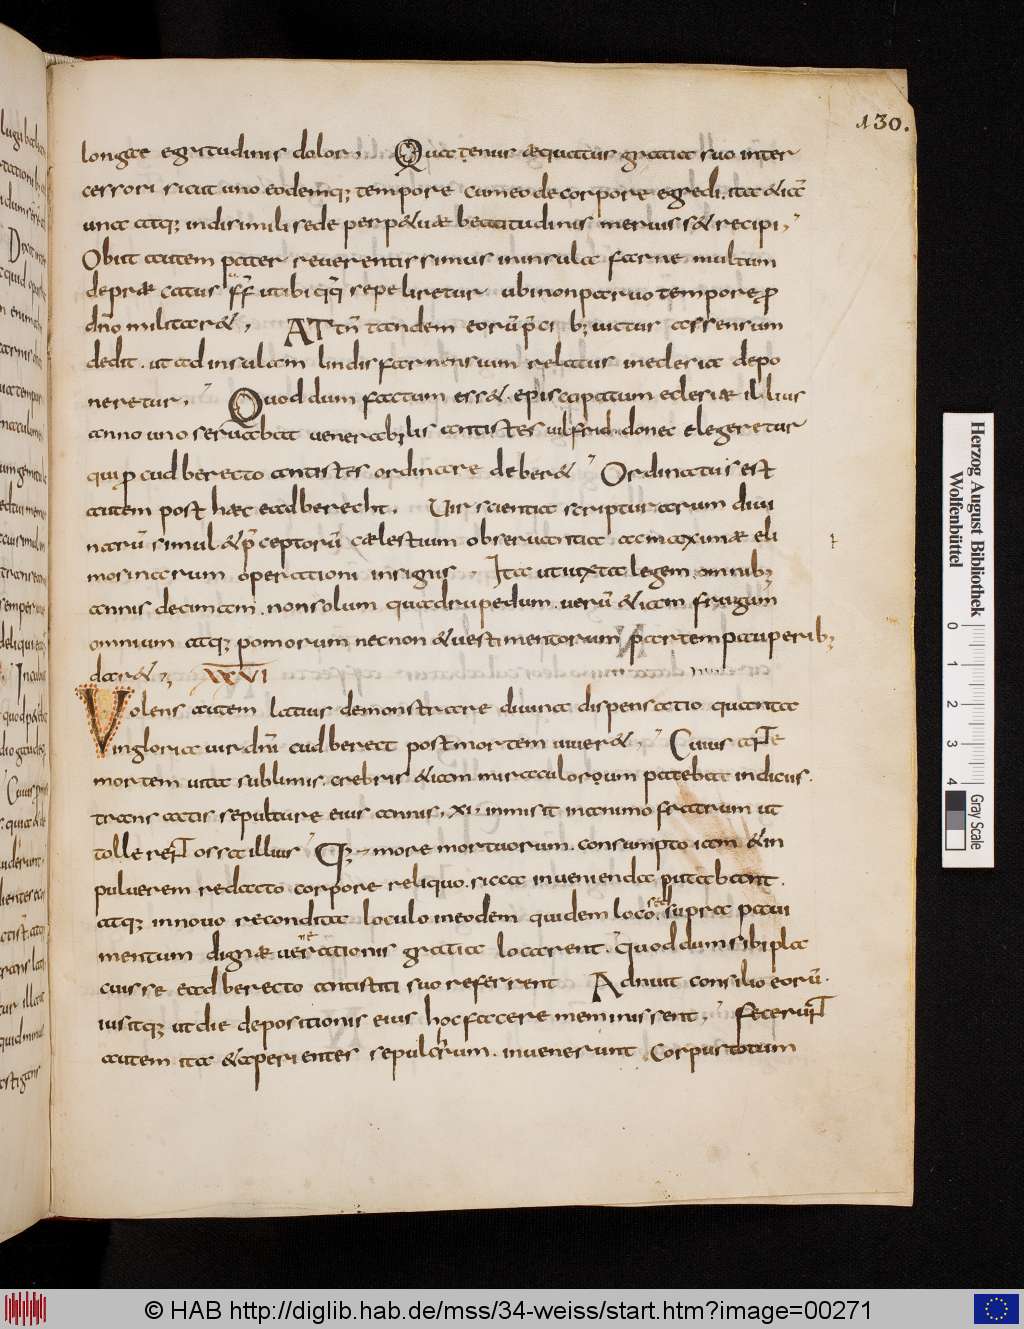 130.
longae egritudinis dolor, Quatenus aequatus gratia suo inter
cessori sicut uno eodemq; tempore cum eo de corpore egredi. ita & iā
una atq; indisimili sede perp&uae beatitudinis meruis s& recipi,
Obiit autem pater reverentissimus in insula farne multum
deprae catus ff̄ ut ibi qq̄ sepeliretur ubi non parvo tempore ꝓ
dn̄o militar&, AT tn̄ tandem eorū p̄ci b; uictus assensum
dedit. ut ad insulam lindisfarnensium relatus in eclesia depo
neretur, Quod dum factum ess&. episcapatum eclesiae illius
anno uno seruabat uenerab;lis antistes uilfrid. donec elegeretur
qui ꝓ cudberecto antistes ordinare deber& Ordinatus est
autem post haec eadberecht. Uir scientia scripturarum diui
narū simul & p̄ceptorū caelestium obseruantia ac maximae eli
mosinarum operationi insignis. Ita ut iuxta legem. omnib;
annis decimam. non solum quadrupedum. uerū & iam frugum
omnium atq; pomorum necnon & uestimentorum partem pauperib;
dar&. XXVI
Volens autem latius demonstrare diuina dispensatio quanta
in gloria uir dn̄i cudberect post mortem uiuer&, Cuius
mortem uitae sublimis. crebris & iam miraculorum patebat indicus.
trans actis sepulture eius annis. XI. inmisit in animo fratrum ut
ossa illius more mortuorum. consumpto iam & in
puluerem redacto corpore reliquo. sicca inuenienda putabant.
atq; in nouo recondita loculo in eodem quidem loco. sed supra paui
mentum dignae uenerationis gratia locarent. Quod dum sibi pla
cuisse eadberecto antistiti suo referrent Adnuit consilio eorū.
iusitq; ut die depositionis eius hoc facere meminissent,
autem ita & aperientes sepulcrum. inuenerunt corpus totum
Herzog August Bibliothek
Wolfenbüttel
0 1 2 3 4
Gray Scale
© HAB http://diglib.hab.de/mss/34-weiss/start.htm?image=00271